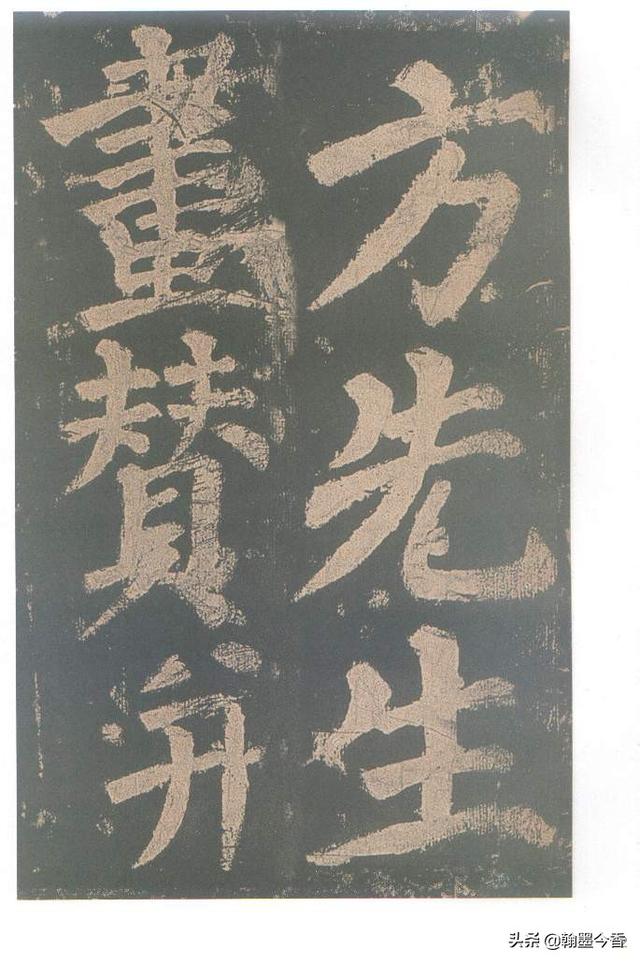 方先生
畫贊并
头条 @翰墨今香